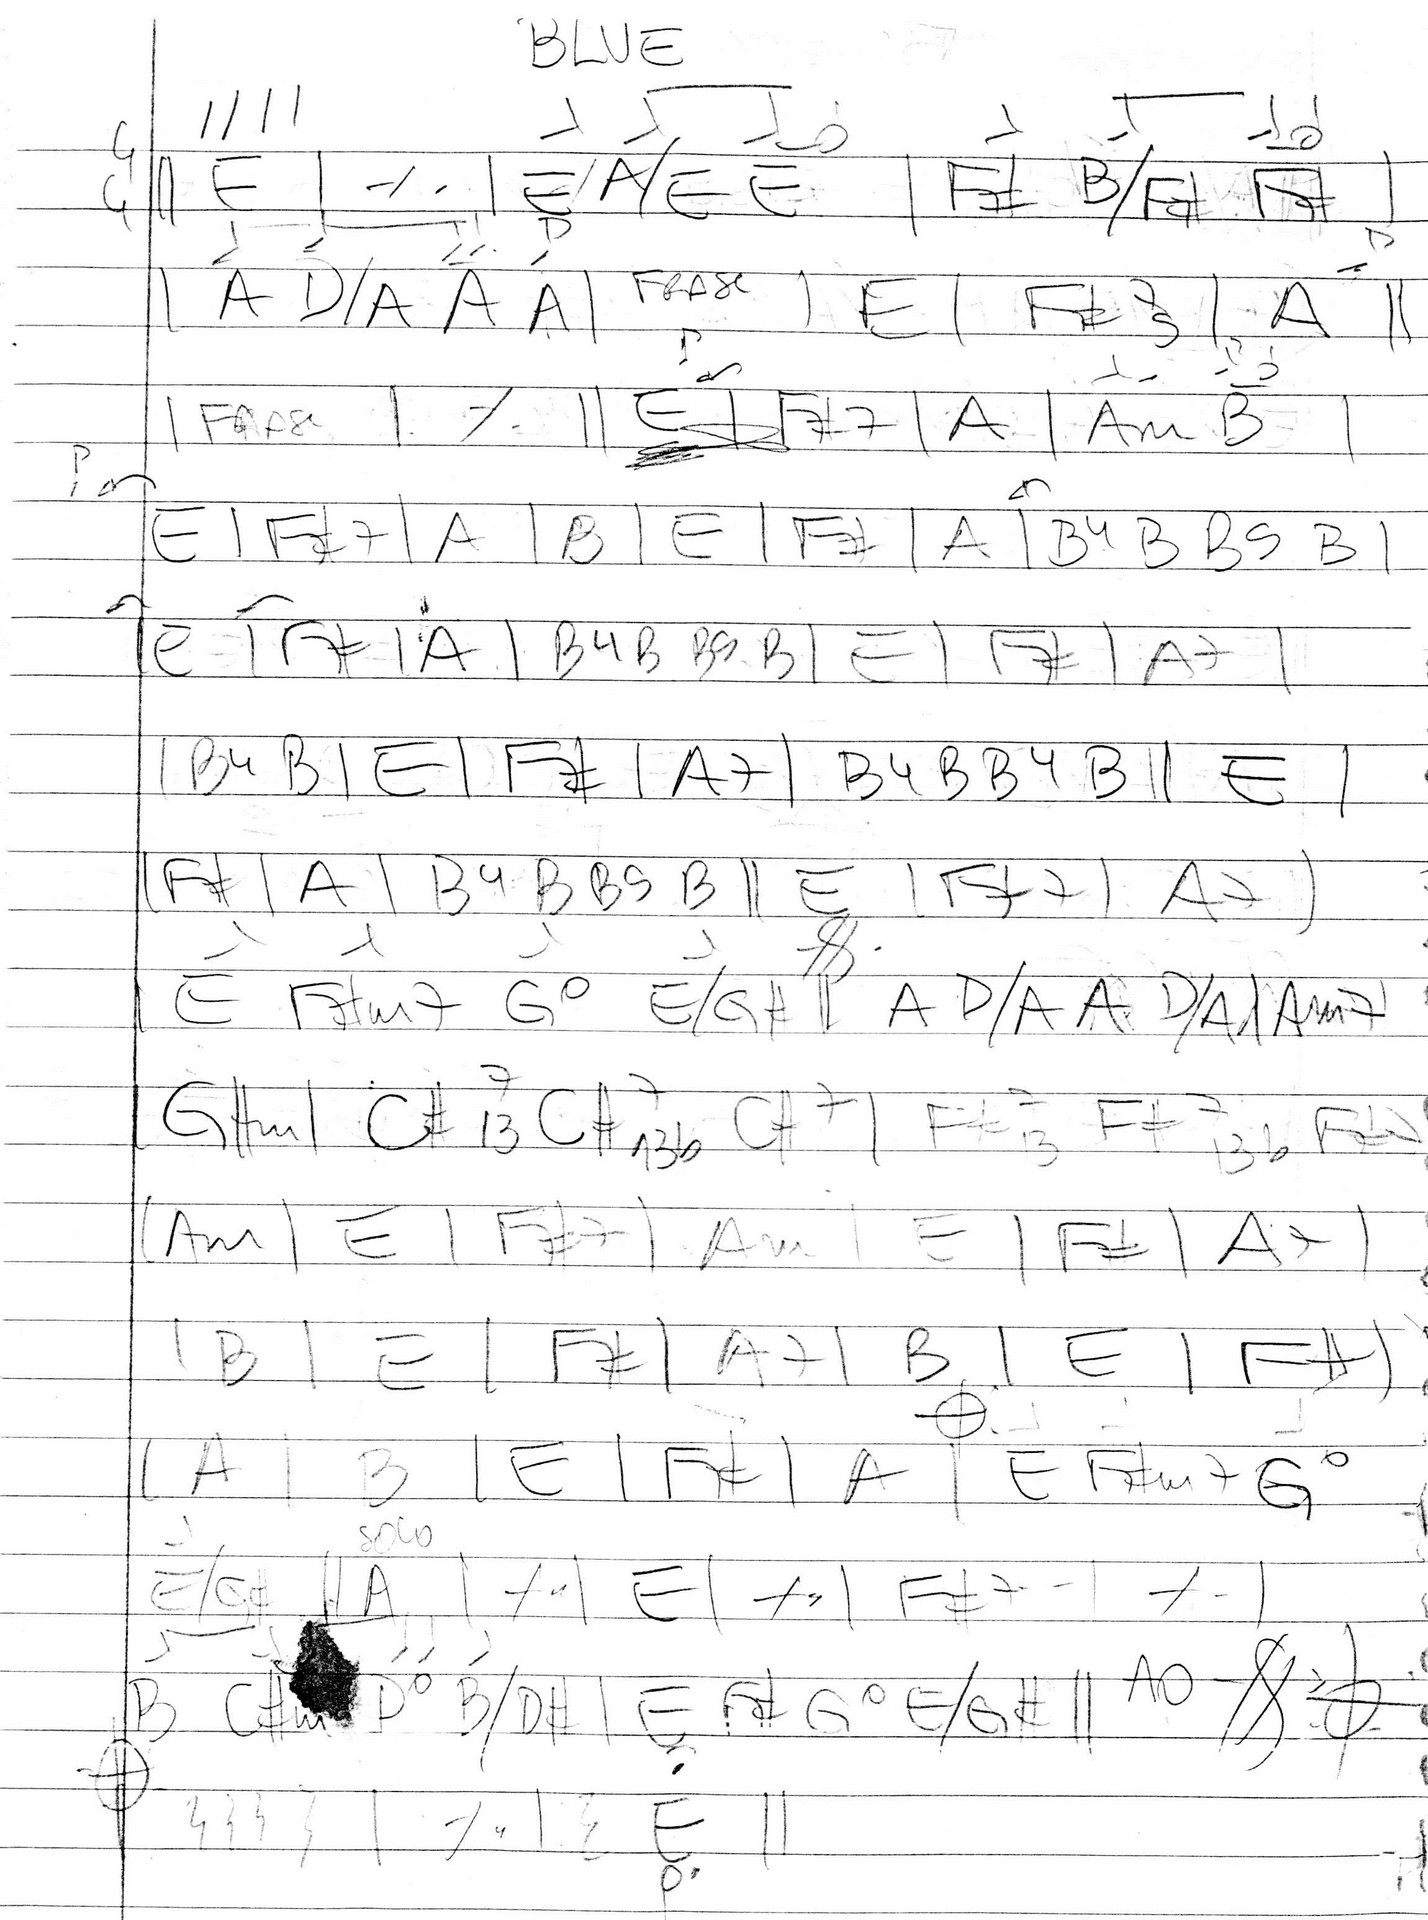 BLUE
4/4 || E | ٪ | E A/E E | F# B/F# F# |
| A D/A A A | FRASE | E | F#7 | A ||
| FRASE | ٪ || E | F#7 | A | Am B |
E | F#7 | A | B | E | F# | A | B4 B B9 B |
| E | F# | A | B4 B B9 B | E | F# | A7 |
| B4 B | E | F# | A7 | B4 B B4 B || E |
| F# | A | B4 B B9 B || E | F#7 | A7 |
| E F#m7 G° E/G# || A D/A A D/A | Am7
| G#m | C#7 13 C#7 13b C#7 | F#7 13 F#7 13b F#7
| Am | E | F#7 | Am | E | F# | A7 |
| B | E | F# | A7 | B | E | F# |
| A | B | E | F# | A | E F#m7 G°
SOLO
E/G# || A | ٪ | E | ٪ | F#7 | ٪ |
B C#m D° B/D# | E F# G° E/G# || AO 𝄋 𝄌
𝄌 | ٪ | E ||